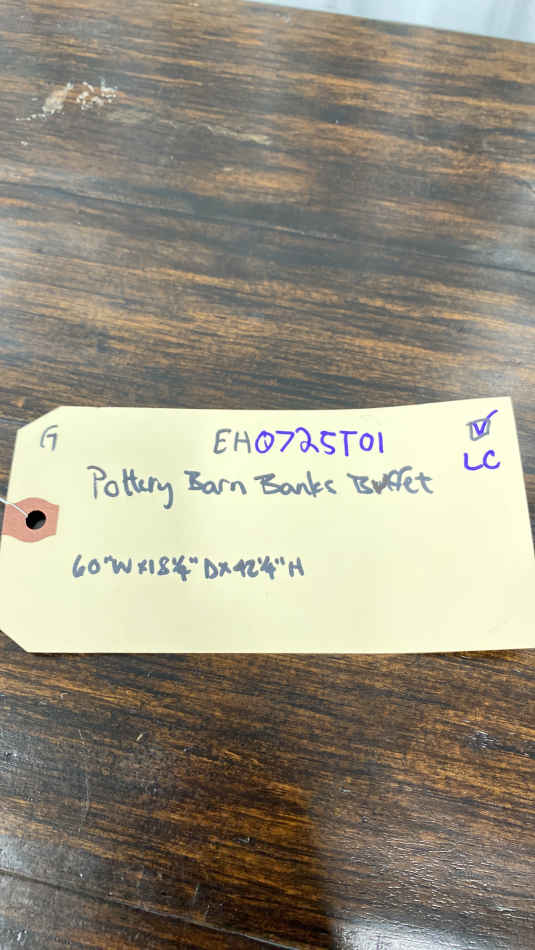 G EH0725T01
LC
Pottery Barn Banks Buffet
60"W x 18 1/4" D x 42 1/4" H